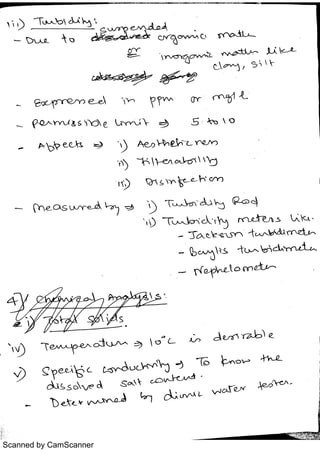 iii) Turbidity:
- Due to suspended organic matter
or
inorganic matter like
clay, silt
- Expressed in ppm or mg/l
- Permissible limit ⇒ 5 to 10
- Affects ⇒ i) Aestheticness
ii) Filterability
iii) Disinfection
- Measured by ⇒ i) Turbidity Rod
ii) Turbidity meters like.
- Jackson turbidimeter
- Baylis turbidimeter
- Nephelometer
4) Chemical Analysis:
i) Total Solids.
iv) Temperature ⇒ 10°C is desirable
v) Specific conductivity ⇒ To know the
dissolved salt content.
- Determined by dionic water tester.
Scanned by CamScanner